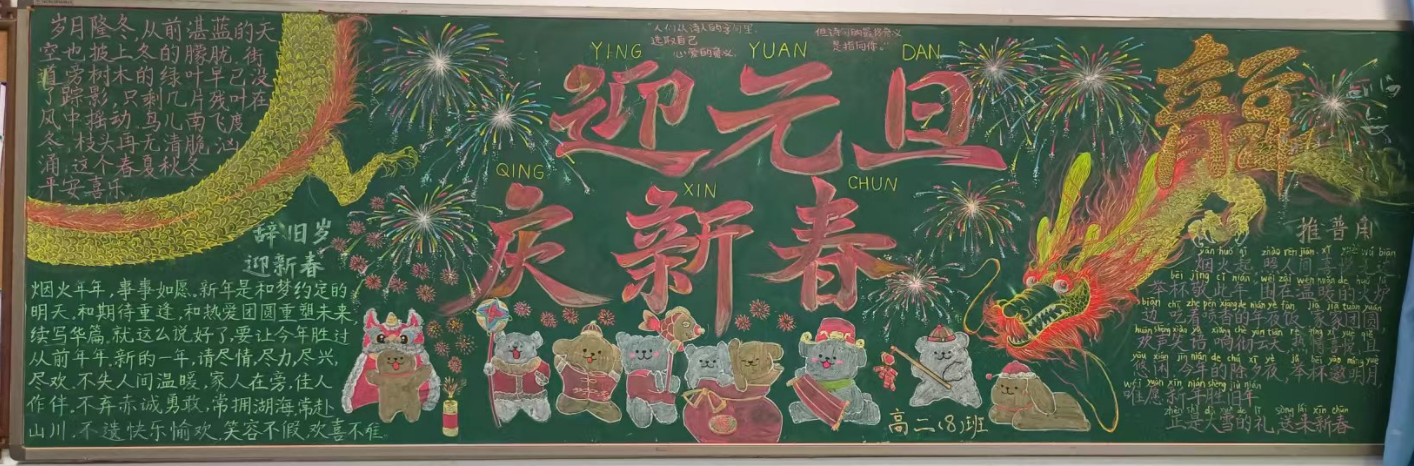 岁月隆冬,从前湛蓝的天
空也披上冬的朦胧.街
道旁树木的绿叶早已没
了踪影,只剩几片残叶在
风中摇动.鸟儿南飞度
冬,枝头再无清脆,汹
涌.这个春夏秋冬
平安喜乐
辞旧岁
迎新春
烟火年年,事事如愿.新年是和梦约定的
明天,和期待重逢,和热爱团圆重塑未来
续写华篇.就这么说好了,要让今年胜过
从前年年,新的一年,请尽情,尽力,尽兴,
尽欢.不失人间温暖,家人在旁,佳人
作伴.不弃赤诚勇敢,常拥湖海,常赴
山川.不遗快乐愉欢,笑容不假,欢喜不难.
选取自己
心爱的意义
是相同的
YING YUAN DAN
迎元旦
QING XIN CHUN
庆新春
高二(8)班
龍
推普角
举杯敬此年
边,吃着喷香的年夜饭,家家团圆,
欢声笑语响彻云天
悠闲,今年的除夕夜,举杯邀明月,
wéi yuàn xīn nián shèng jiù nián
唯愿新年胜旧年
正是大雪的礼,送来新春